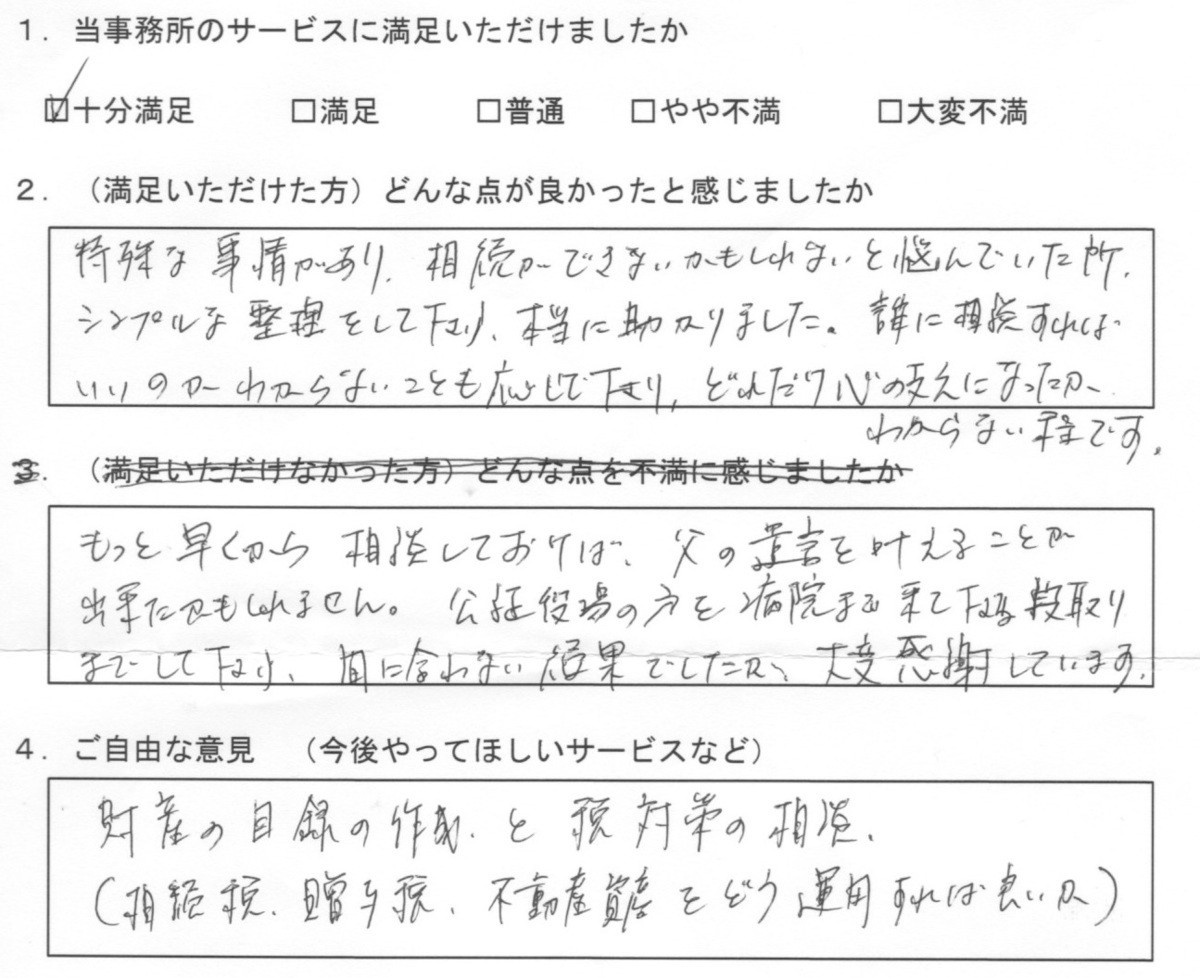 1．当事務所のサービスに満足いただけましたか
☑十分満足 □満足 □普通 □やや不満 □大変不満
2．（満足いただけた方）どんな点が良かったと感じましたか
特殊な事情があり、相続ができないかもしれないと悩んでいた所、
シンプルな整理をして下さり、本当に助かりました。誰に相談すれば
いいのかわからないことも応じて下さり、どれだけ心の支えになったか
わからない程です。
3．（満足いただけなかった方）どんな点を不満に感じましたか
もっと早くから相談しておけば、父の遺言を叶えることが
出来たかもしれません。公証役場の方を病院まで来て下さる段取り
までして下さり、間に合わない結果でしたが、大変感謝しています。
4．ご自由な意見 （今後やってほしいサービスなど）
財産の目録の作成と税対策の相談、
（相続税、贈与税、不動産資産をどう運用すれば良いか）